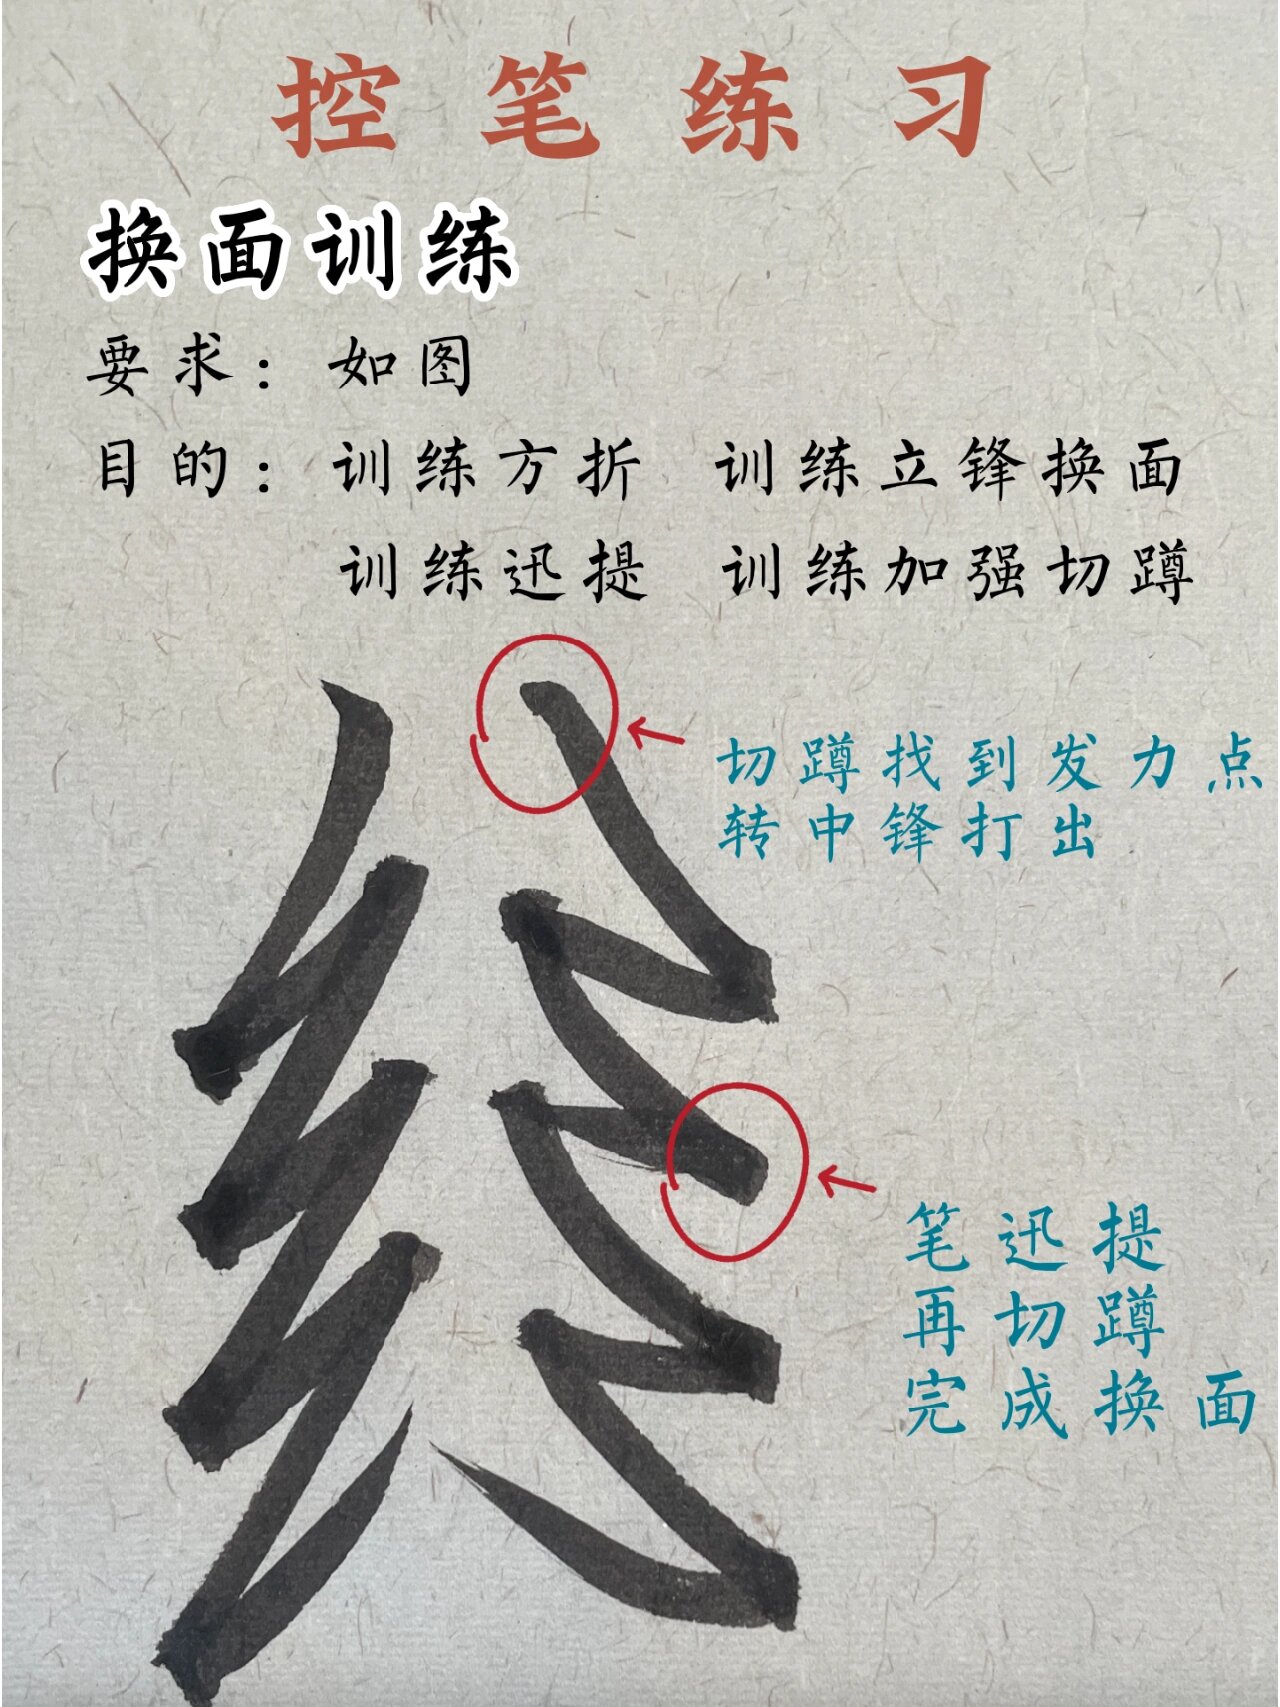 控笔练习
换面训练
要求：如图
目的：训练方折 训练立锋换面
训练迅提 训练加强切蹲
切蹲找到发力点
转中锋打出
笔迅提
再切蹲
完成换面